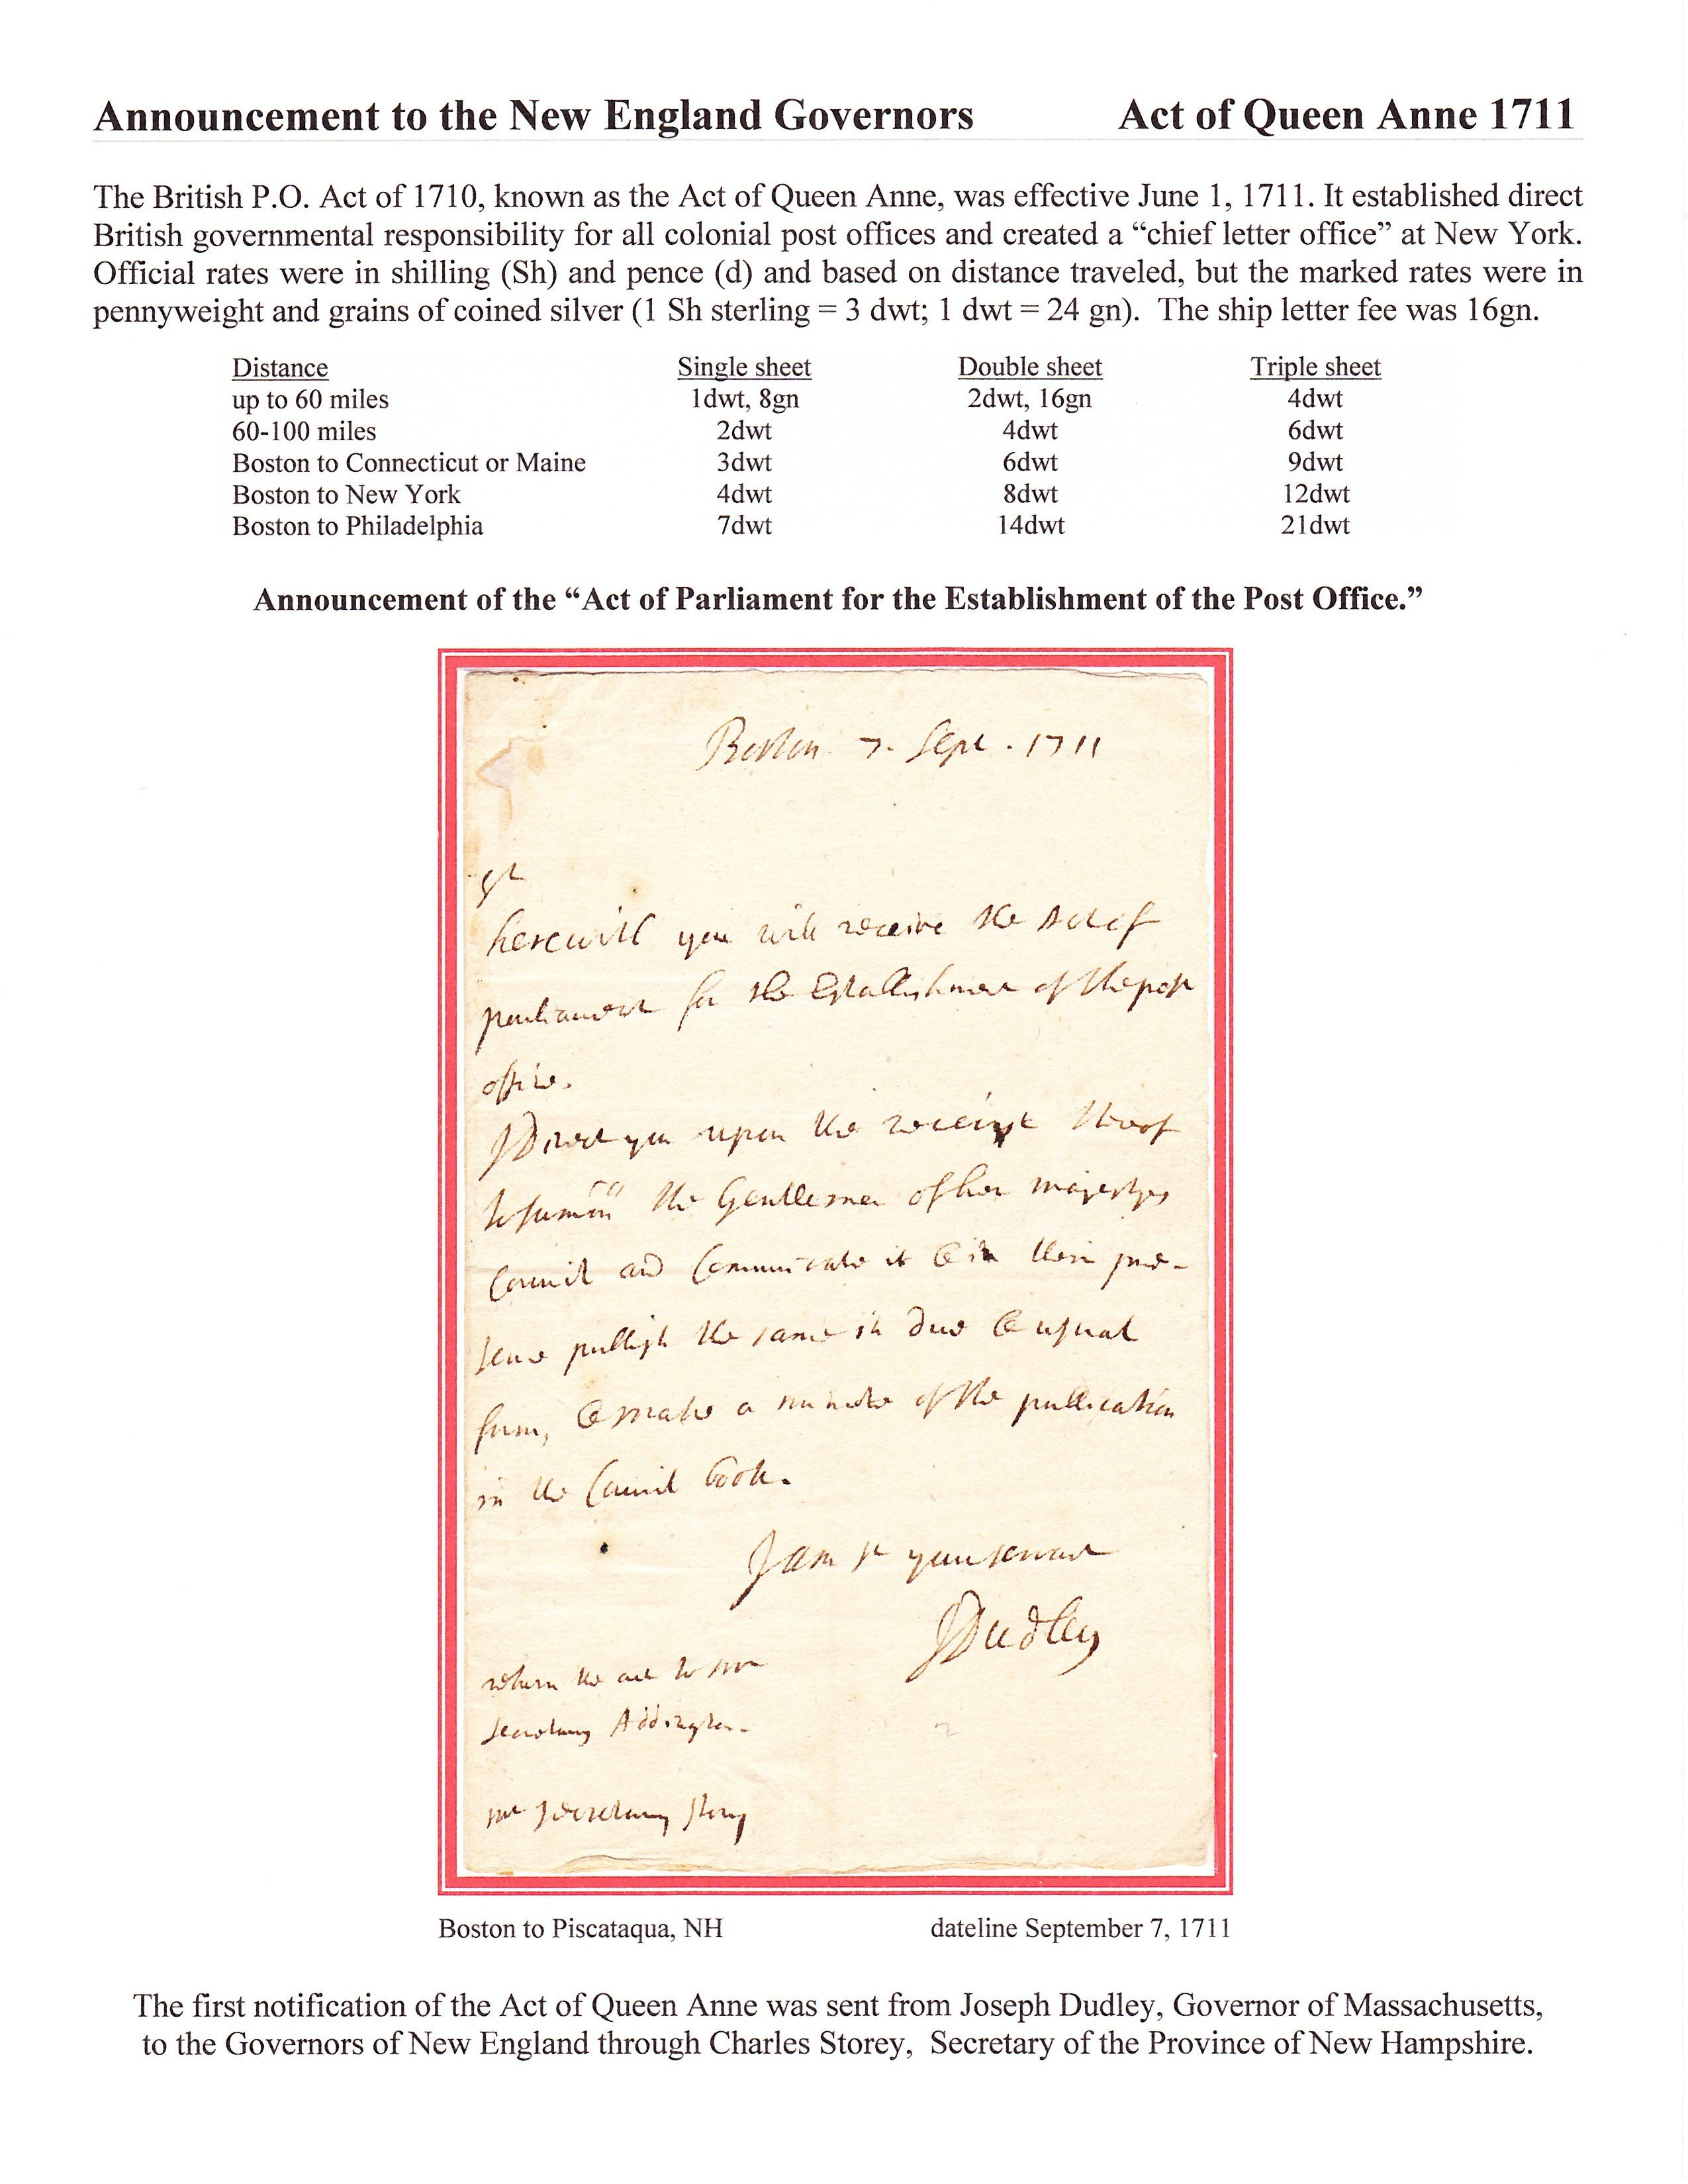 Announcement to the New England Governors Act of Queen Anne 1711
The British P.O. Act of 1710, known as the Act of Queen Anne, was effective June 1, 1711. It established direct
British governmental responsibility for all colonial post offices and created a “chief letter office” at New York.
Official rates were in shilling (Sh) and pence (d) and based on distance traveled, but the marked rates were in
pennyweight and grains of coined silver (1 Sh sterling = 3 dwt; 1 dwt = 24 gn). The ship letter fee was 16gn.
Distance Single sheet Double sheet Triple sheet
up to 60 miles 1dwt, 8gn 2dwt, 16gn 4dwt
60-100 miles 2dwt 4dwt 6dwt
Boston to Connecticut or Maine 3dwt 6dwt 9dwt
Boston to New York 4dwt 8dwt 12dwt
Boston to Philadelphia 7dwt 14dwt 21dwt
Announcement of the “Act of Parliament for the Establishment of the Post Office.”
Boston 7. Sept. 1711
Sr
herewith you will receive the Act of
parliament for the Establishment of the post
office.
I Direct you upon the receipt thereof
to sumon the Gentlemen of her majestyes
Council and Communicate it & in their pre-
sence publish the same in due & usual
form, & make a minute of the publication
in the Council book.
I am Sr your servant
JDudley
return the act to mr
Secretary Addington.
mr Secretary Story
Boston to Piscataqua, NH dateline September 7, 1711
The first notification of the Act of Queen Anne was sent from Joseph Dudley, Governor of Massachusetts,
to the Governors of New England through Charles Storey, Secretary of the Province of New Hampshire.